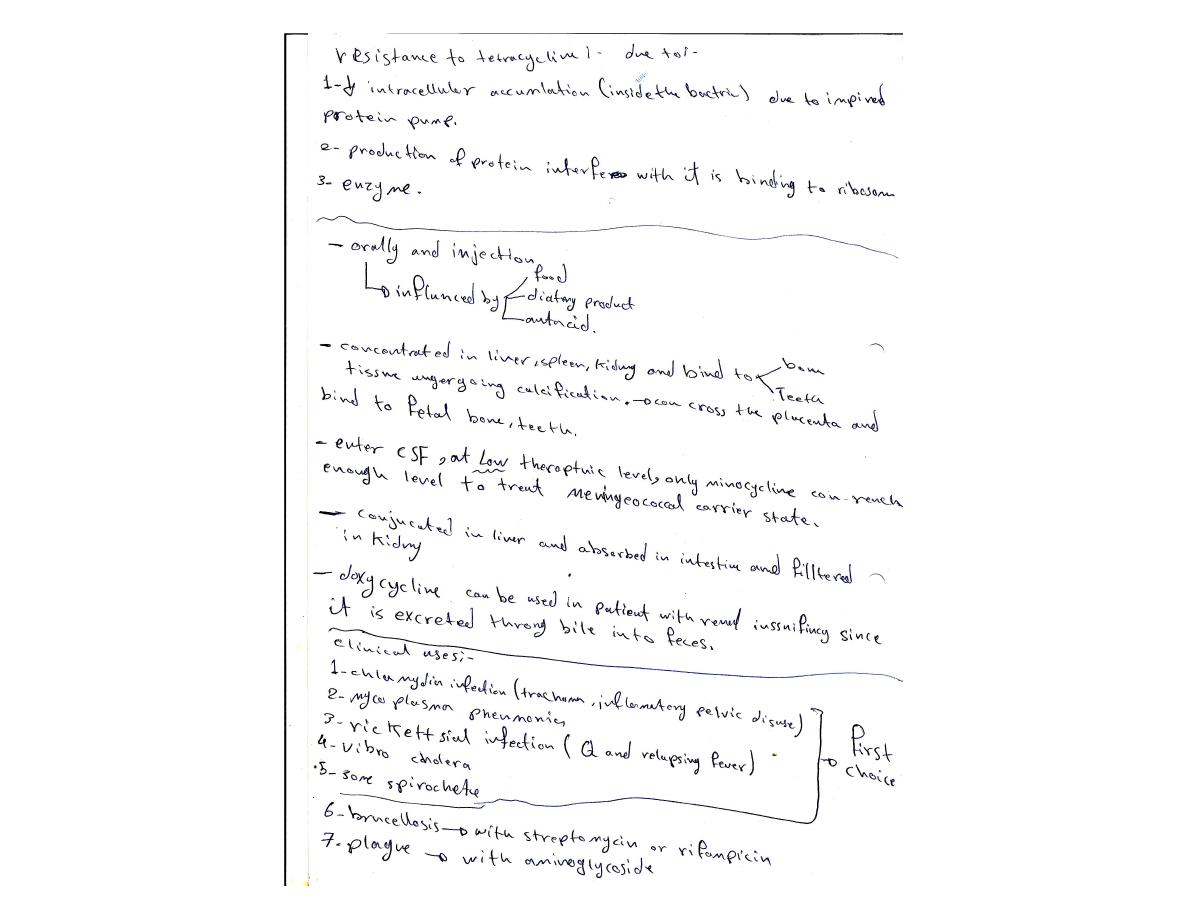 resistance to tetracycline :- due to:-
1-↓ intracellular accumlation (inside the bactria) due to impired
protein pump.
2- production of protein interferes with it is binding to ribosom
3- enzyme.
- orally and injection
↳ influnced by food
diatary product
antacid.
- concentrated in liver, spleen, kidny and bind to bone
Teeth
tissue ungergoing calcification. → can cross the placenta and
bind to fetal bone, teeth.
- enter CSF, at Low theraptuic level, only minocycline can reach
enough level to treat meningeococcal carrier state.
- conjucated in liver and absorbed in intestine and filltered
in kidny
- doxycycline can be used in patient with renal inssnifincy since
it is excreted throng bile into feces.
clinical uses:-
1- chlamydia infection (trachoma, inflammatory pelvic disuse)
2- myco plasma pneumonia
3- rickettsial infection (Q and relapsing fever)
4- vibro cholera
5- some spirochete
→ First
choice
6- brucellosis → with streptomycin or rifampicin
7- plague → with aminoglycoside